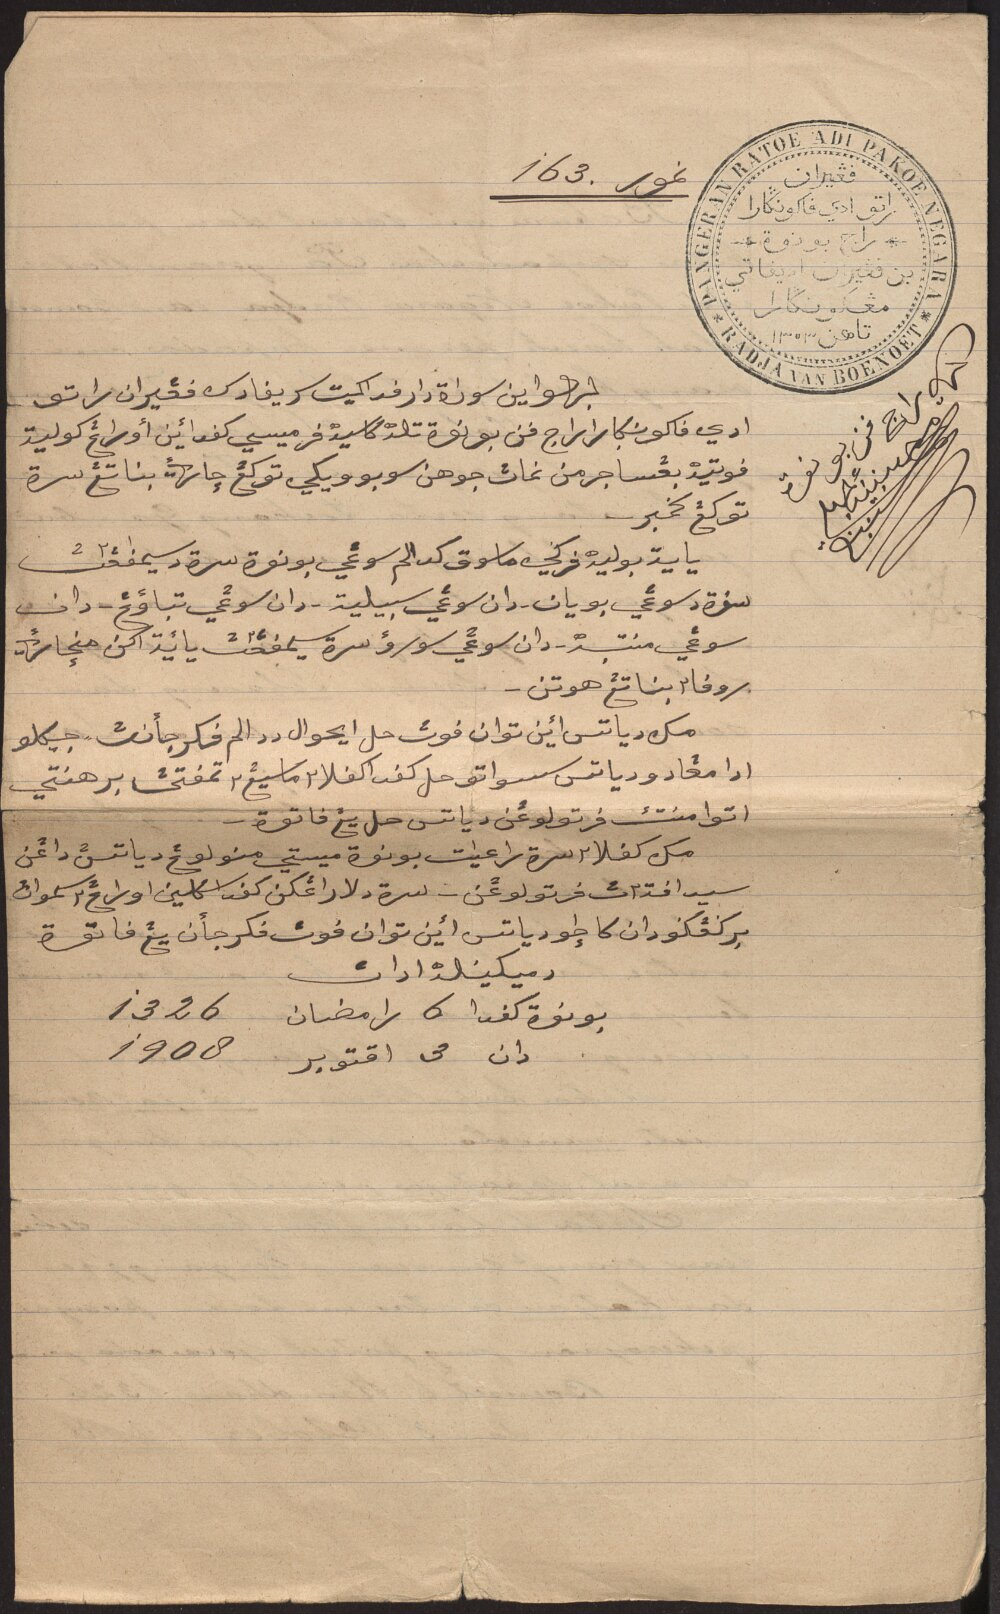 نمور 163.
PANGERAN RATOE ADI PAKOE NEGARA
* RADJA VAN BOENOET *
ڤڠيران
راتو ادي ڤاكو نڬارا
راج بونوة
بن ڤڠيران اديڤاتي
مڠكو نڬارا
تاهن ١٣٠٣
راج ڤن بونوة
بهوا اين سورة دار ڤد اكميت سريڤادك ڤڠيران راتو
ادي ڤاكو نڬارا راج ڤن بونوة تله كاسيه ڤرميسي كڤد اين اورڠ كولية
ڤوتيه بڠسا جرمن نمات جوهن سوبوويكي توكڠ چاري بناتڠ سرة
توكڠ ڬمبر —
يايت بوليه ڤرڬي ماسوق كدالم سوڠي بونوة سرة دسيمڤڠن٢ث
سڤرة دسوڠي بويان - دان سوڠي سبيلية - دان سوڠي تباوڠ - دان
سوڠي منتبه - دان سوڠي سوروء سرة سيمڤڠن٢ث يايت اكن منچاري
روڤا٢ بناتڠ هوتن —
مك دياتس اين توان ڤوث حل ايحوال ددالم ڤكرجأنث جيكلو
ادا مڠادو دياتس سسواتو حل كڤد كڤلا٢ ماسيڠ٢ تمڤتث برهنتي
اتوا منتث ڤرتولوڠن دياتس حل يڠ ڤاتوة —
مك كڤلا٢ سرة راعيت بونوة ميستي منولوڠ دياتسث داڠن
سبيد اڤد٢ث ڤرتولوڠن — سرة دلاراڠكن كڤد سكلين اورڠ٢ سموان
بركڠكو دان كاچو دياتس اين توان ڤوث ڤكرجأن يڠ ڤاتوة
دميكينله ادان
بونوة كڤد 6 رامضان 1326
دان 3 اقتوبر 1908